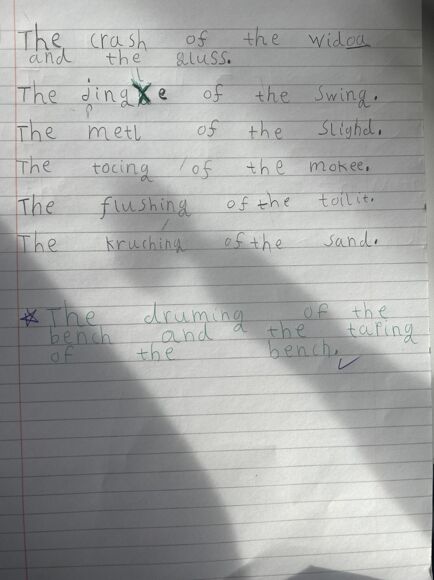 The crash of the widoa
and the gluss.
The jingle of the swing.
The metl of the slighd.
The tocing of the mokee.
The flushing of the toilit.
The kruching of the sand.
The druming of the
bench and the taping
of the bench.